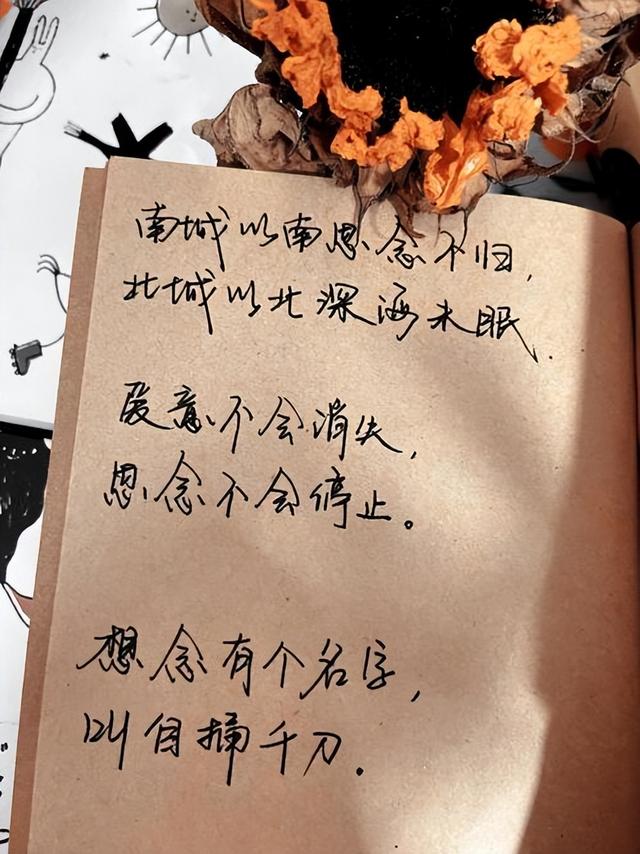 南城以南思念不归，
北城以北深海未眠.
爱意不会消失，
思念不会停止。
想念有个名字，
叫自捅千刀.